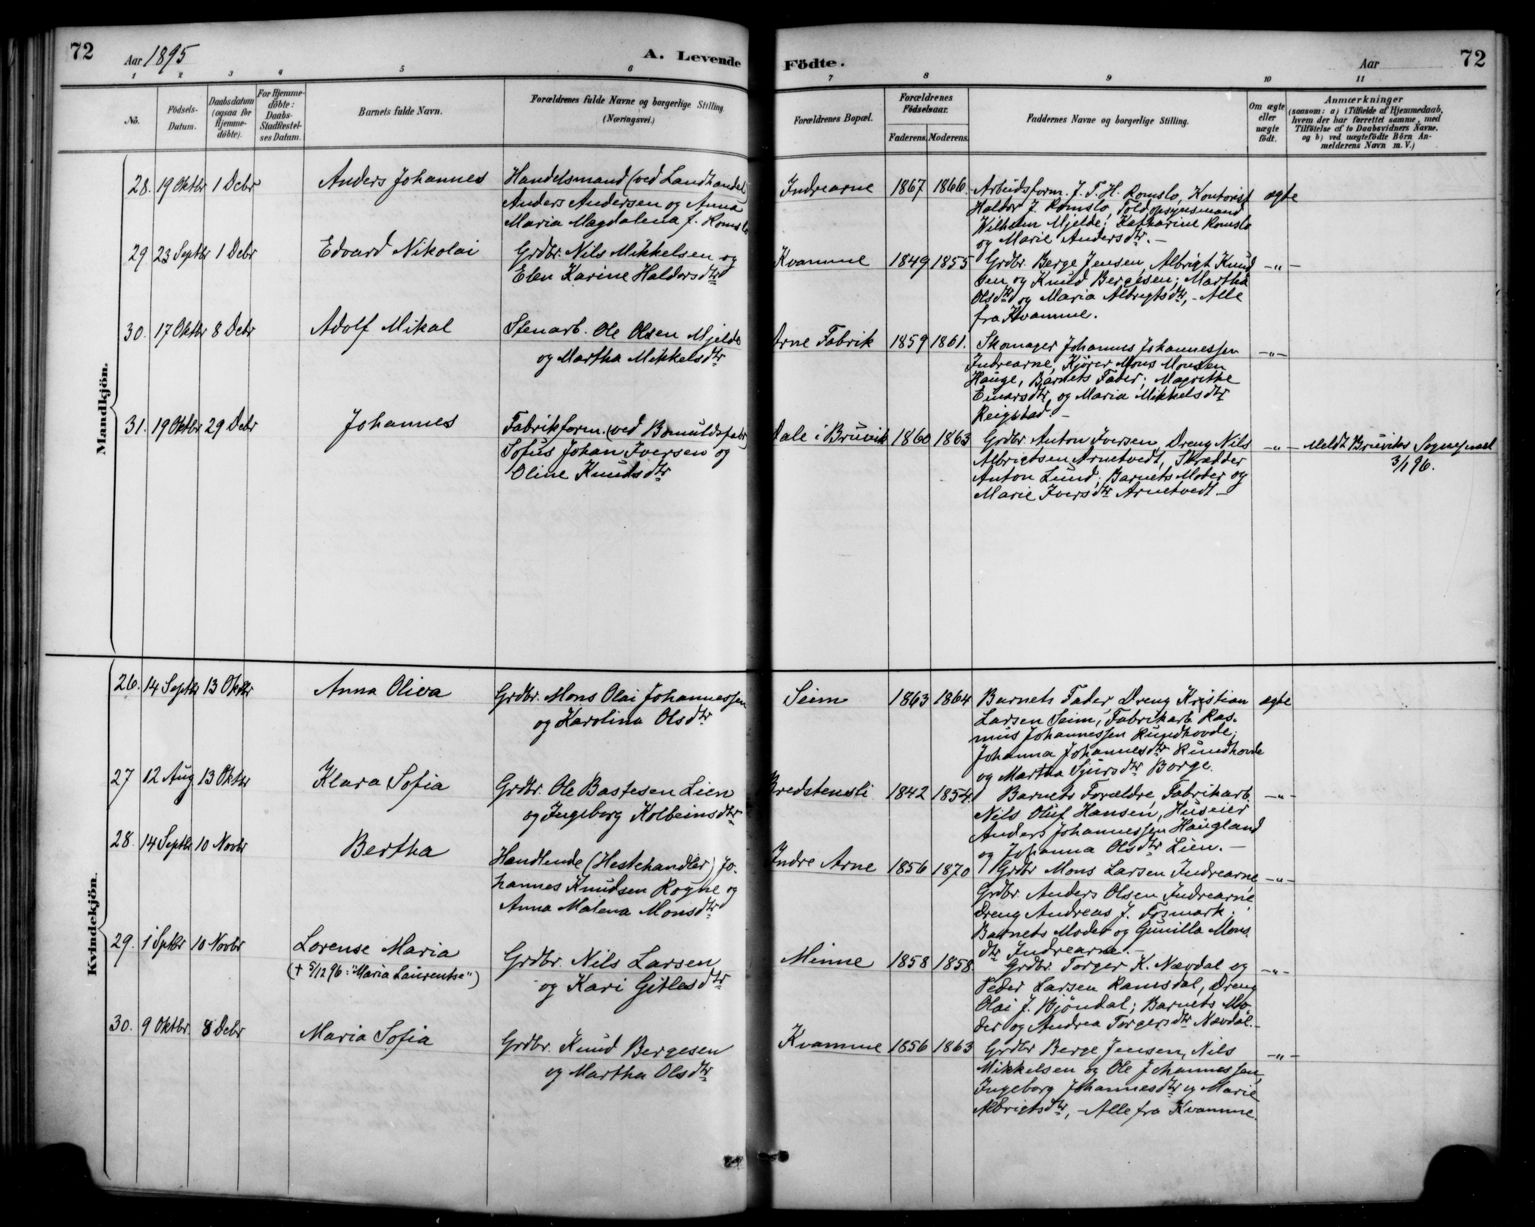 72
Aar 1895
A. Levende
Födte.
Aar
72
1 2 3 4 5 6 7 8 9 10 11
No.
Födsels-
Datum.
Daabsdatum
(ogsaa for
Hjemme-
döbte).
For Hjemme-
döbte:
Daabs-
Stadfæstel-
ses Datum.
Barnets fulde Navn.
Forældrenes fulde Navne og borgerlige Stilling
(Næringsvei.)
Forældrenes Bopæl.
Forældrenes
Födselsaar.
Faderens. Moderens.
Faddernes Navne og borgerlige Stilling.
Om ægte
eller
uægte
födt.
Anmærkninger
(saasom: a) i Tilfælde af Hjemmedaab,
hvem der har forrettet samme, med
Tilföielse af to Daabsvidners Navne.
og b) ved uægtefödte Börn An-
melderens Navn m. V.)
Mandkjön.
28. 19 Oktbr 1 Debr
Anders Johannes
Handelsmand (ved Landhandel
Anders Andersen og Anna
Maria Magdalena f. Romslo
Indrearne
1867 1866.
Arbeidsform. J. T. H. Romslo, Kontorist
Haldor J. Romslo, Toldopsynsmand
Wilhelm Mjelde; Katharine Romslo
og Marie Andersdtr. —
ægte
29 23 Septbr 1 Debr
Edvard Nikolai
Grdbr. Nils Mikkelsen og
Elen Karine Haldorsdtr
Kvamme
1849 1855
Grdbr. Berge Jensen, Albrigt Knud
sen og Knud Bergesen; Martha
Olsdtr og Maria Albrigtsdtr, – Alle
fra Kvamme.
—„—
30. 17 Oktbr 8 Debr
Adolf Mikal
Stenarb. Ole Olsen Mjelde
og Martha Mikkelsdtr
Arne Fabrik
1859 1861.
Skomager Johannes Johannessen
Indrearne, Kjörer Mons Monsen
Hauge, Barnets Fader; Magrethe
Einarsdtr, og Maria Mikkelsdtr
Reigstad. —
—„—
31. 19 Oktbr 29 Debr
Johannes
Fabrikform. (ved Bomuldsfabr)
Sofus Johan Iversen og
Oline Knudsdtr
Dale i Bruvik
1860 1863
Grdbr. Anton Iversen, Dreng Nils
Albrigtsen Arnetvedt, Skrædder
Anton Lund; Barnets Moder og
Marie Iversdtr Arnetvedt —
—„—
Meldt Bruviks Sognepræst
3/1 96.
Kvindekjön.
26. 14 Septbr 13 Oktbr
Anna Oliva
Grdbr. Mons Olai Johannessen
og Karolina Olsdtr
Seim
1863 1864
Barnets Fader Dreng Kristian
Larsen Seim, Fabrikarb. Ras-
mus Johannessen Rundhovde;
Johanna Johannesdtr Rundhovde
og Martha Sjursdtr Borge.
ægte
27 12 Aug 13 Oktbr
Klara Sofia
Grdbr. Ole Bastesen Lien
og Ingeborg Kolbeinsdtr
Bredstensli
1842 1854.
Barnets Forældre, Fabrikarb.
Nils Oluf Hansen, Huseier
Anders Johannessen Haugland
og Johanna Olsdtr Lien. —
—„—
28. 14 Septbr 10 Novbr
Bertha
Handlende (Hestehandler) Jo-
hannes Knudsen Rogne og
Anna Malena Monsdtr
Indre Arne
1856 1870
Grdbr Mons Larsen Indrearne
Grdbr. Anders Olsen Indrearne
Dreng Andreas J.
Barnets Moder og Gunilla Mons
dtr Indrearne. —
—„—
29. 1 Septbr 10 Novbr
Lorense Maria
(+ 5/12 96: "Maria Laurentse")
Grdbr. Nils Larsen
og Kari Gitlesdtr
Minne
1858 1858
Grdbr. Torger K. Nævdal og
Peder Larsen Ramsdal, Dreng
Olai J. Bjöndal; Barnets Mo-
der og Andrea Torgersdtr Nævdal.
—„—
30. 9 Oktbr. 8 Debr
Maria Sofia
Grdbr. Knud Bergesen
og Martha Olsdtr
Kvamme
1856 1863
Grdbr Berge Jensen, Nils
Mikkelsen og Ole Johannessen,
Ingeborg Johannesdtr og Marie
Albrigtsdtr, – Alle fra Kvamme
—„—